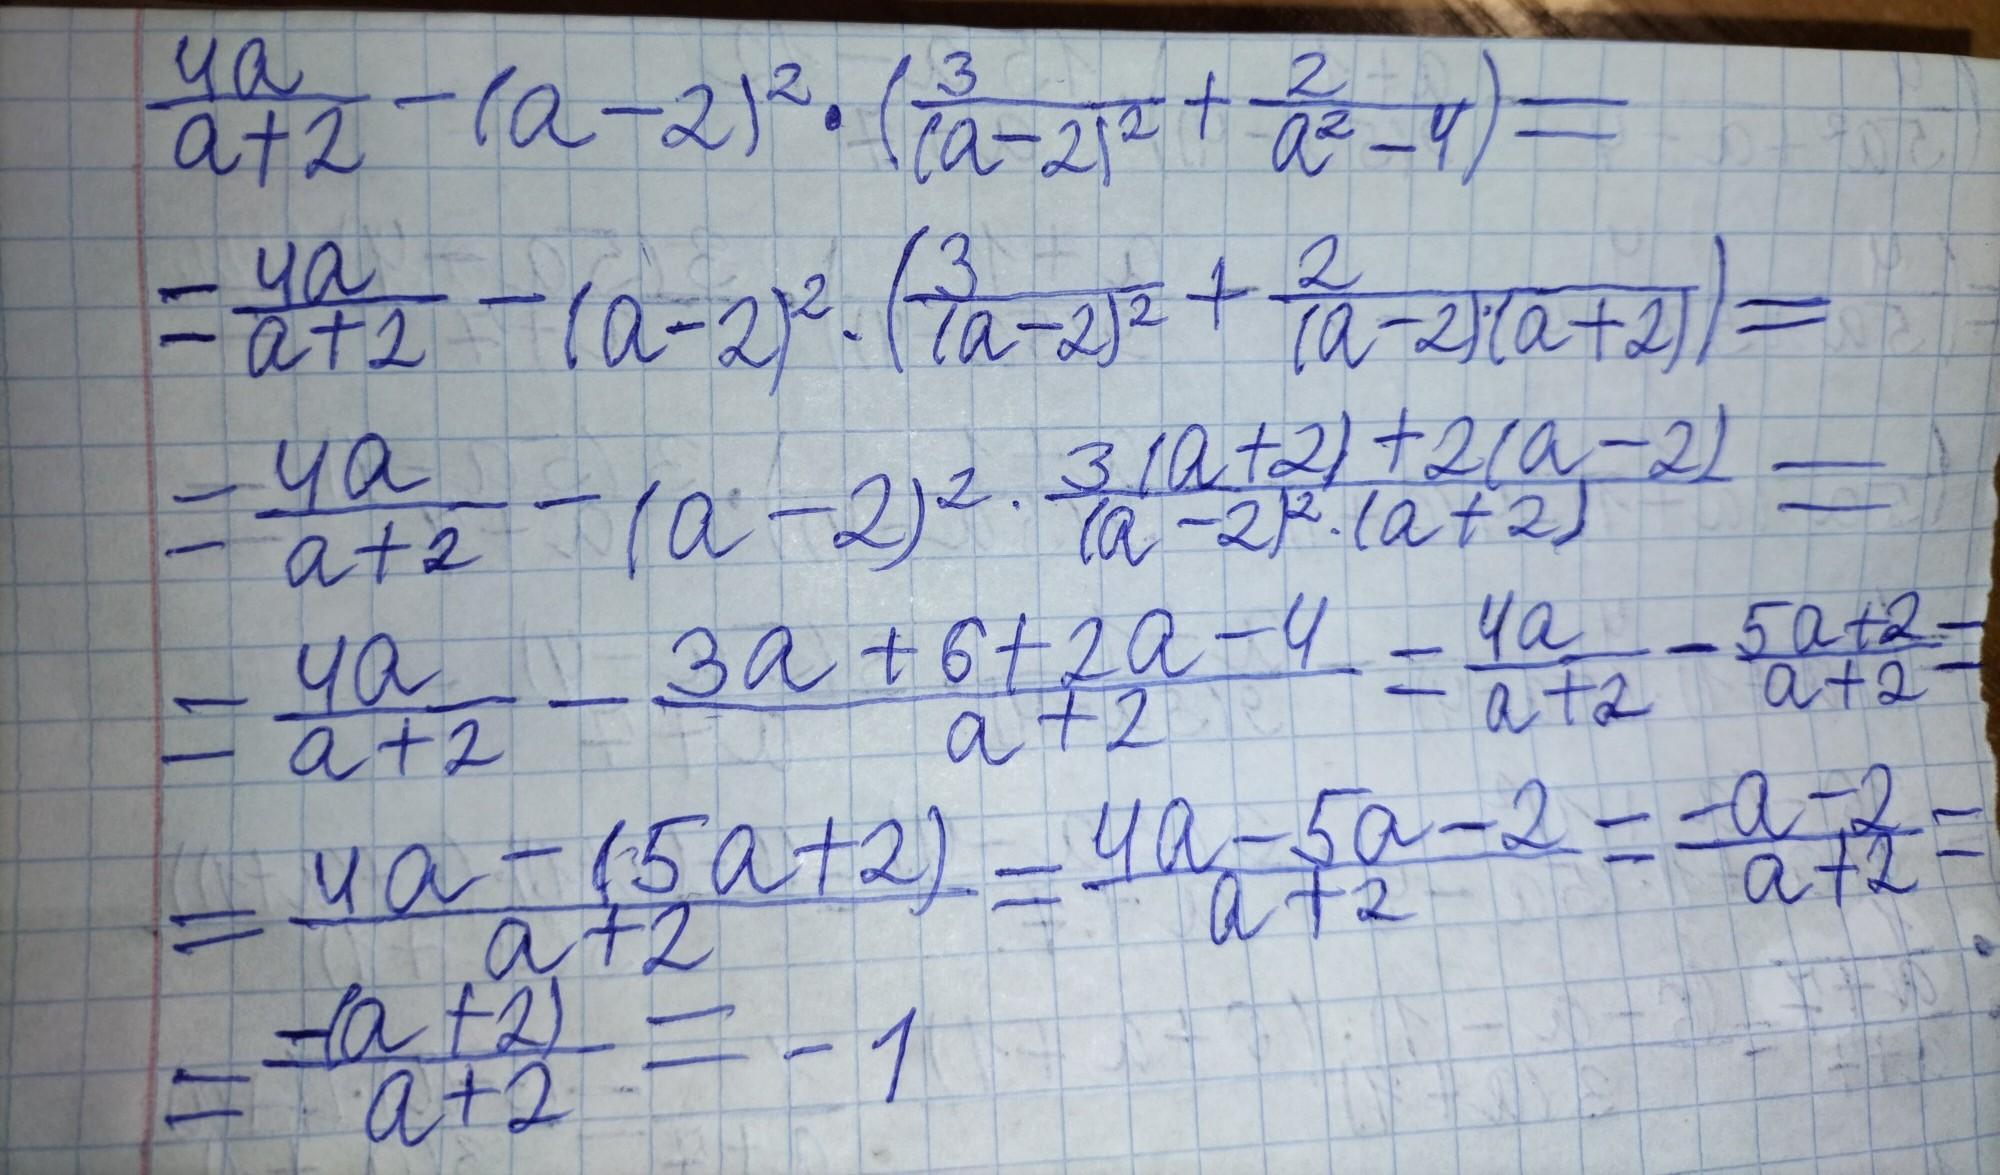 4a/(a+2) - (a-2)² · (3/(a-2)² + 2/(a²-4)) =
= 4a/(a+2) - (a-2)² · (3/(a-2)² + 2/((a-2)·(a+2))) =
= 4a/(a+2) - (a-2)² · (3(a+2)+2(a-2))/((a-2)²·(a+2)) =
= 4a/(a+2) - (3a+6+2a-4)/(a+2) = 4a/(a+2) - (5a+2)/(a+2) =
= (4a-(5a+2))/(a+2) = (4a-5a-2)/(a+2) = (-a-2)/(a+2) =
= -(a+2)/(a+2) = -1